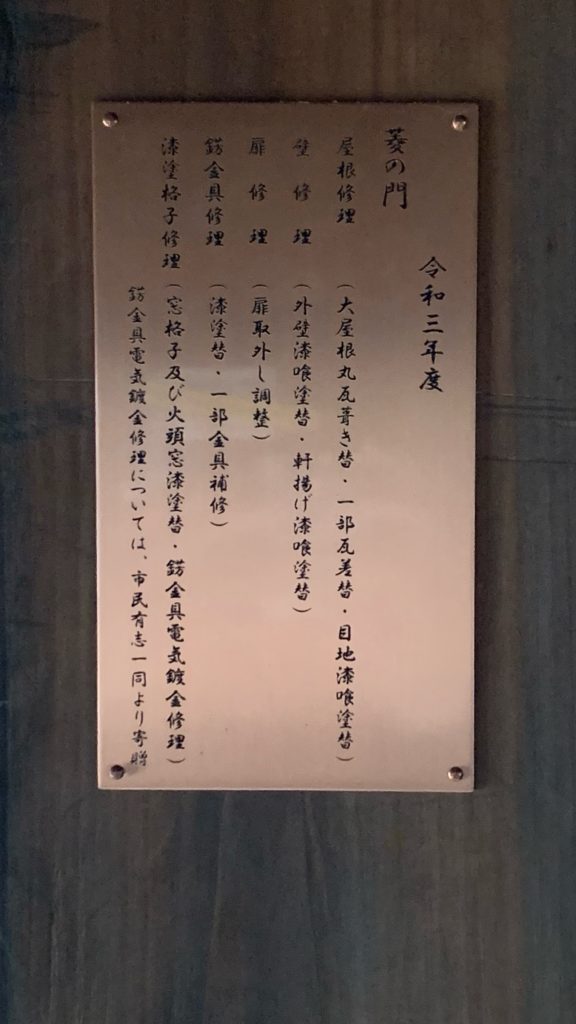 令和三年度
菱の門
屋根修理(大屋根丸瓦葺き替・一部瓦差替・目地漆喰塗替)
壁修理(外壁漆喰塗替・軒揚げ漆喰塗替)
扉修理(扉取外し調整)
錺金具修理(漆塗替・一部金具補修)
漆塗格子修理(窓格子及び火頭窓漆塗替・錺金具電気鍍金修理)
錺金具電気鍍金修理については、市民有志一同より寄贈